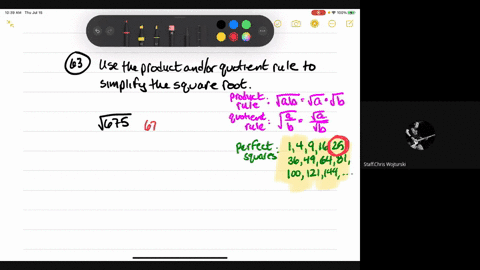 12:38 AM Thu Jul 15
100%
63 Use the product and/or quotient rule to
simplify the square root.
product rule: √ab = √a · √b
quotient rule: √a/b = √a/√b
√675 67
perfect squares: 1, 4, 9, 16, 25,
36, 49, 64, 81,
100, 121, 144, ...
StaffChris Wojturski